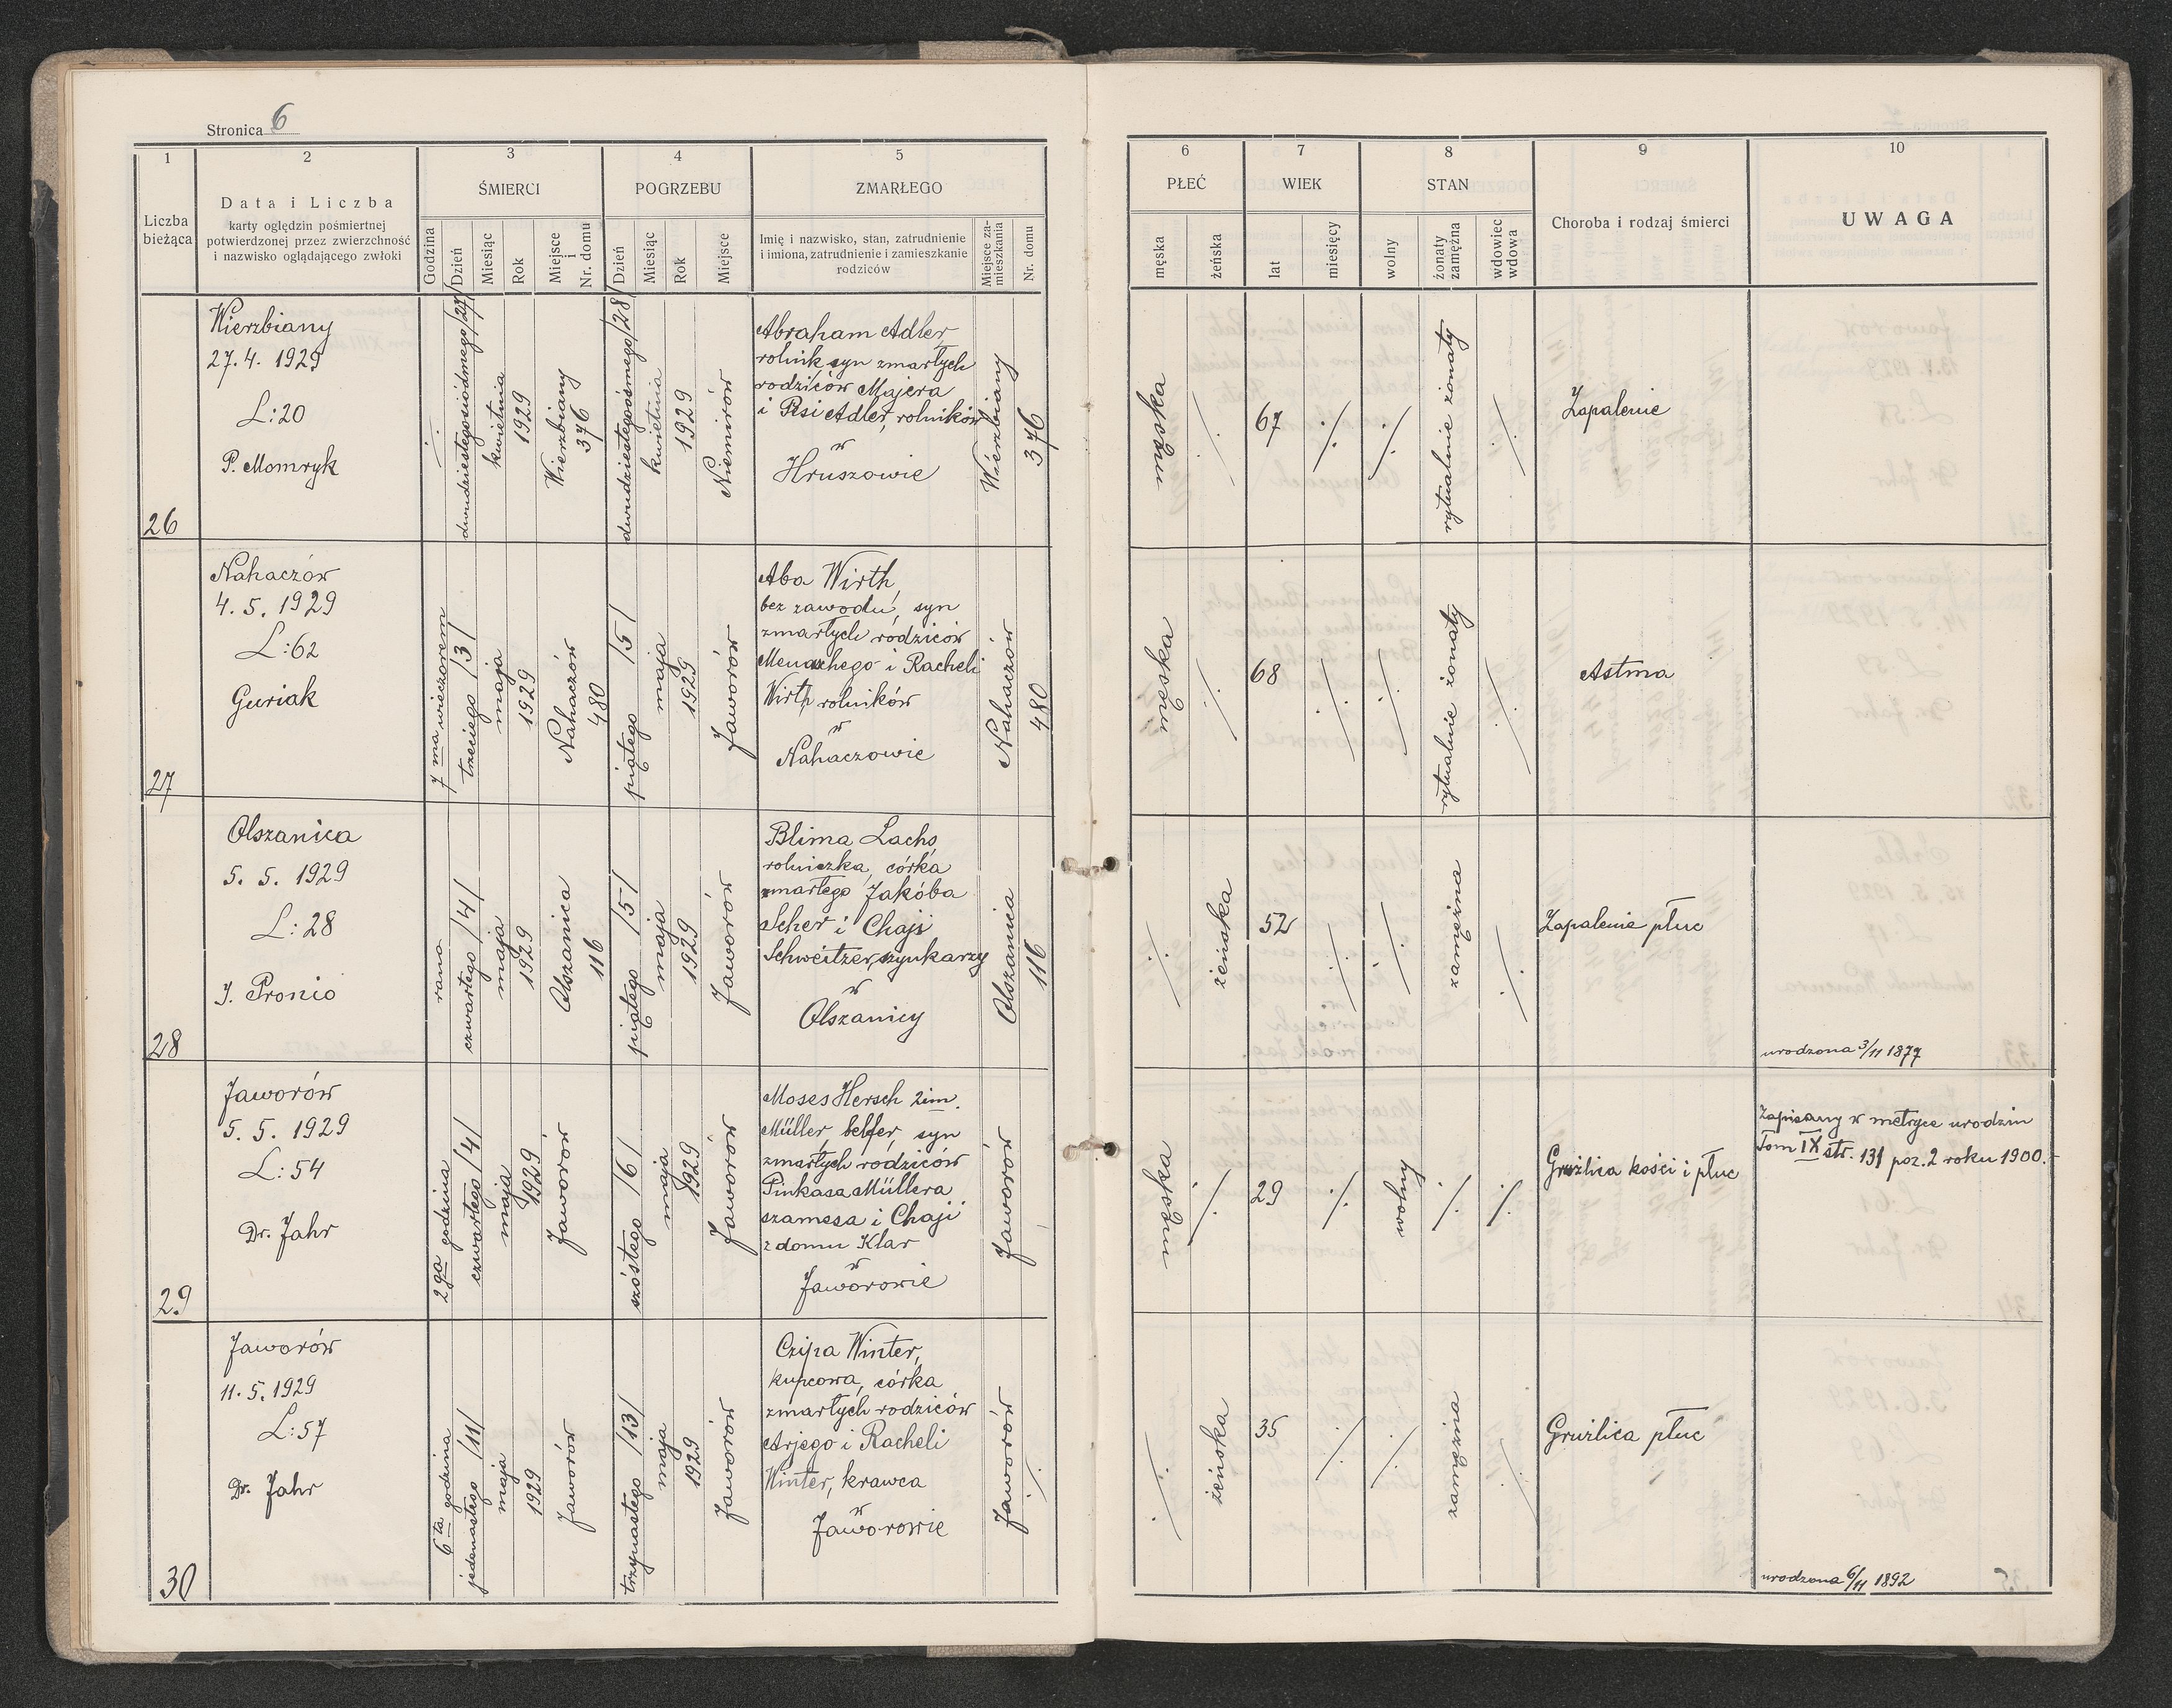 Stronica 6
1 2 3 4 5
Liczba bieżąca
Data i Liczba
karty oględzin pośmiertnej
potwierdzonej przez zwierzchność
i nazwisko oglądającego zwłoki
ŚMIERCI
Godzina
Dzień
Miesiąc
Rok
Miejsce i Nr. domu
POGRZEBU
Dzień
Miesiąc
Rok
Miejsce
ZMARŁEGO
Imię i nazwisko, stan, zatrudnienie
i imiona, zatrudnienie i zamieszkanie
rodziców
Miejsce zamieszkania
Nr. domu
6 7 8 9 10
PŁEĆ
męska
żeńska
WIEK
lat
miesięcy
STAN
wolny
żonaty zamężna
wdowiec wdowa
Choroba i rodzaj śmierci
UWAGA
26
Wierzbiany
27. 4. 1929
L: 20
P. Momryk
./.
dwudziestegosiódmego /27/
kwietnia
1929
Wierzbiany
376
dwudziestegoósmego /28/
kwietnia
1929
Niemirów
Abraham Adler,
rolnik syn zmarłych
rodziców Majera
i Pesi Adler, rolników
w
Hruszowie
Wierzbiany
376
męska
./.
67
./.
./.
rytualnie żonaty
./.
Zapalenie
27
Nahaczów
4. 5. 1929
L: 62
Guriak
7 ma wieczorem
trzeciego /3/
maja
1929
Nahaczów
480
piątego /5/
maja
1929
Jaworów
Aba Wirth,
bez zawodu, syn
zmarłych rodziców
Menachego i Racheli
Wirth rolników
w
Nahaczowie
Nahaczów
480
męska
./.
68
./.
./.
rytualnie żonaty
./.
Astma
28
Olszanica
5. 5. 1929
L: 28
J. Pronio
rano
czwartego /4/
maja
1929
Olszanica
116
piątego /5/
maja
1929
Jaworów
Blima Lachs
rolniczka, córka
zmarłego Jakóba
Scher i Chaji
Schweitzer, szynkarzy
w
Olszanicy
Olszanica
116
./.
żeńska
52
./.
./.
zamężna
./.
Zapalenie płuc
urodzona 3/11 1877
29
Jaworów
5. 5. 1929
L: 54
Dr. Jahr
2 ga godzina
czwartego /4/
maja
1929
Jaworów
szóstego /6/
maja
1929
Jaworów
Moses Hersch 2im.
Müller, belfer, syn
zmarłych rodziców
Pinkasa Müllera
szamesa i Chaji
z domu Klar
w
Jaworowie
Jaworów
męska
./.
29
./.
wolny
./.
./.
Gruźlica kości i płuc
Zapisany w metryce urodzin
Tom IX str. 131 poz. 2 roku 1900.
30
Jaworów
11. 5. 1929
L: 57
Dr. Jahr
6 ta godzina
jedenastego /11/
maja
1929
Jaworów
trzynastego /13/
maja
1929
Jaworów
Czipa Winter,
kupcowa, córka
zmarłych rodziców
Arjego i Racheli
Winter, krawca
w
Jaworowie
Jaworów
./.
./.
żeńska
35
./.
./.
zamężna
./.
Gruźlica płuc
urodzona 6/11 1892